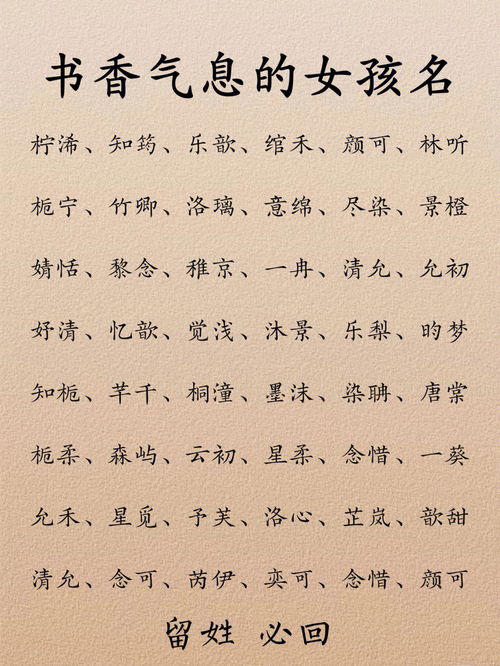 书香气息的女孩名
柠浠、知筠、乐歆、绾禾、颜可、林听
栀宁、竹卿、洛璃、意绵、尽染、景橙
婧恬、黎念、稚京、一冉、清允、允初
妤清、忆歆、觉浅、沐景、乐梨、昀梦
知栀、芊千、桐潼、墨沫、染聃、唐棠
栀柔、森屿、云初、星柔、念惜、一葵
允禾、星觅、予芙、洛心、芷岚、歆甜
清允、念可、芮伊、奕可、念惜、颜可
留姓 必回